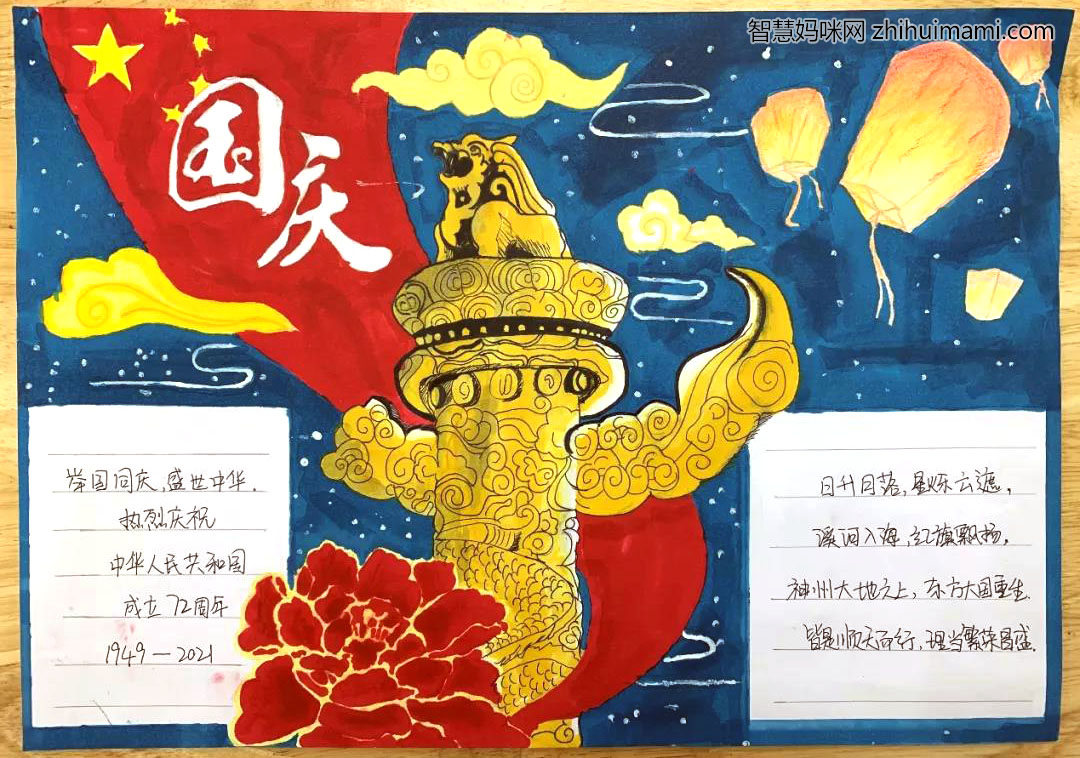 智慧妈咪网 zhihuimami.com
国庆
举国同庆,盛世中华.
热烈庆祝
中华人民共和国
成立72周年
1949—2021
日升月落,星烁云遮,
溪河入海,红旗飘扬,
神州大地之上,东方大国重生.
皆是顺天而行,理当繁荣昌盛.